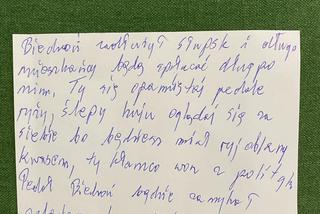 Biedroń zadłużył Słupsk i długo
mieszkańcy będą spłacać dług po
nim. Ty się opamiętaj pedale
ryży, ślepy huju oglądaj się za
siebie bo będziesz miał ryj oblany
kwasem, ty kłamco won z polityk
Pedał Biedroń będzie zamykał